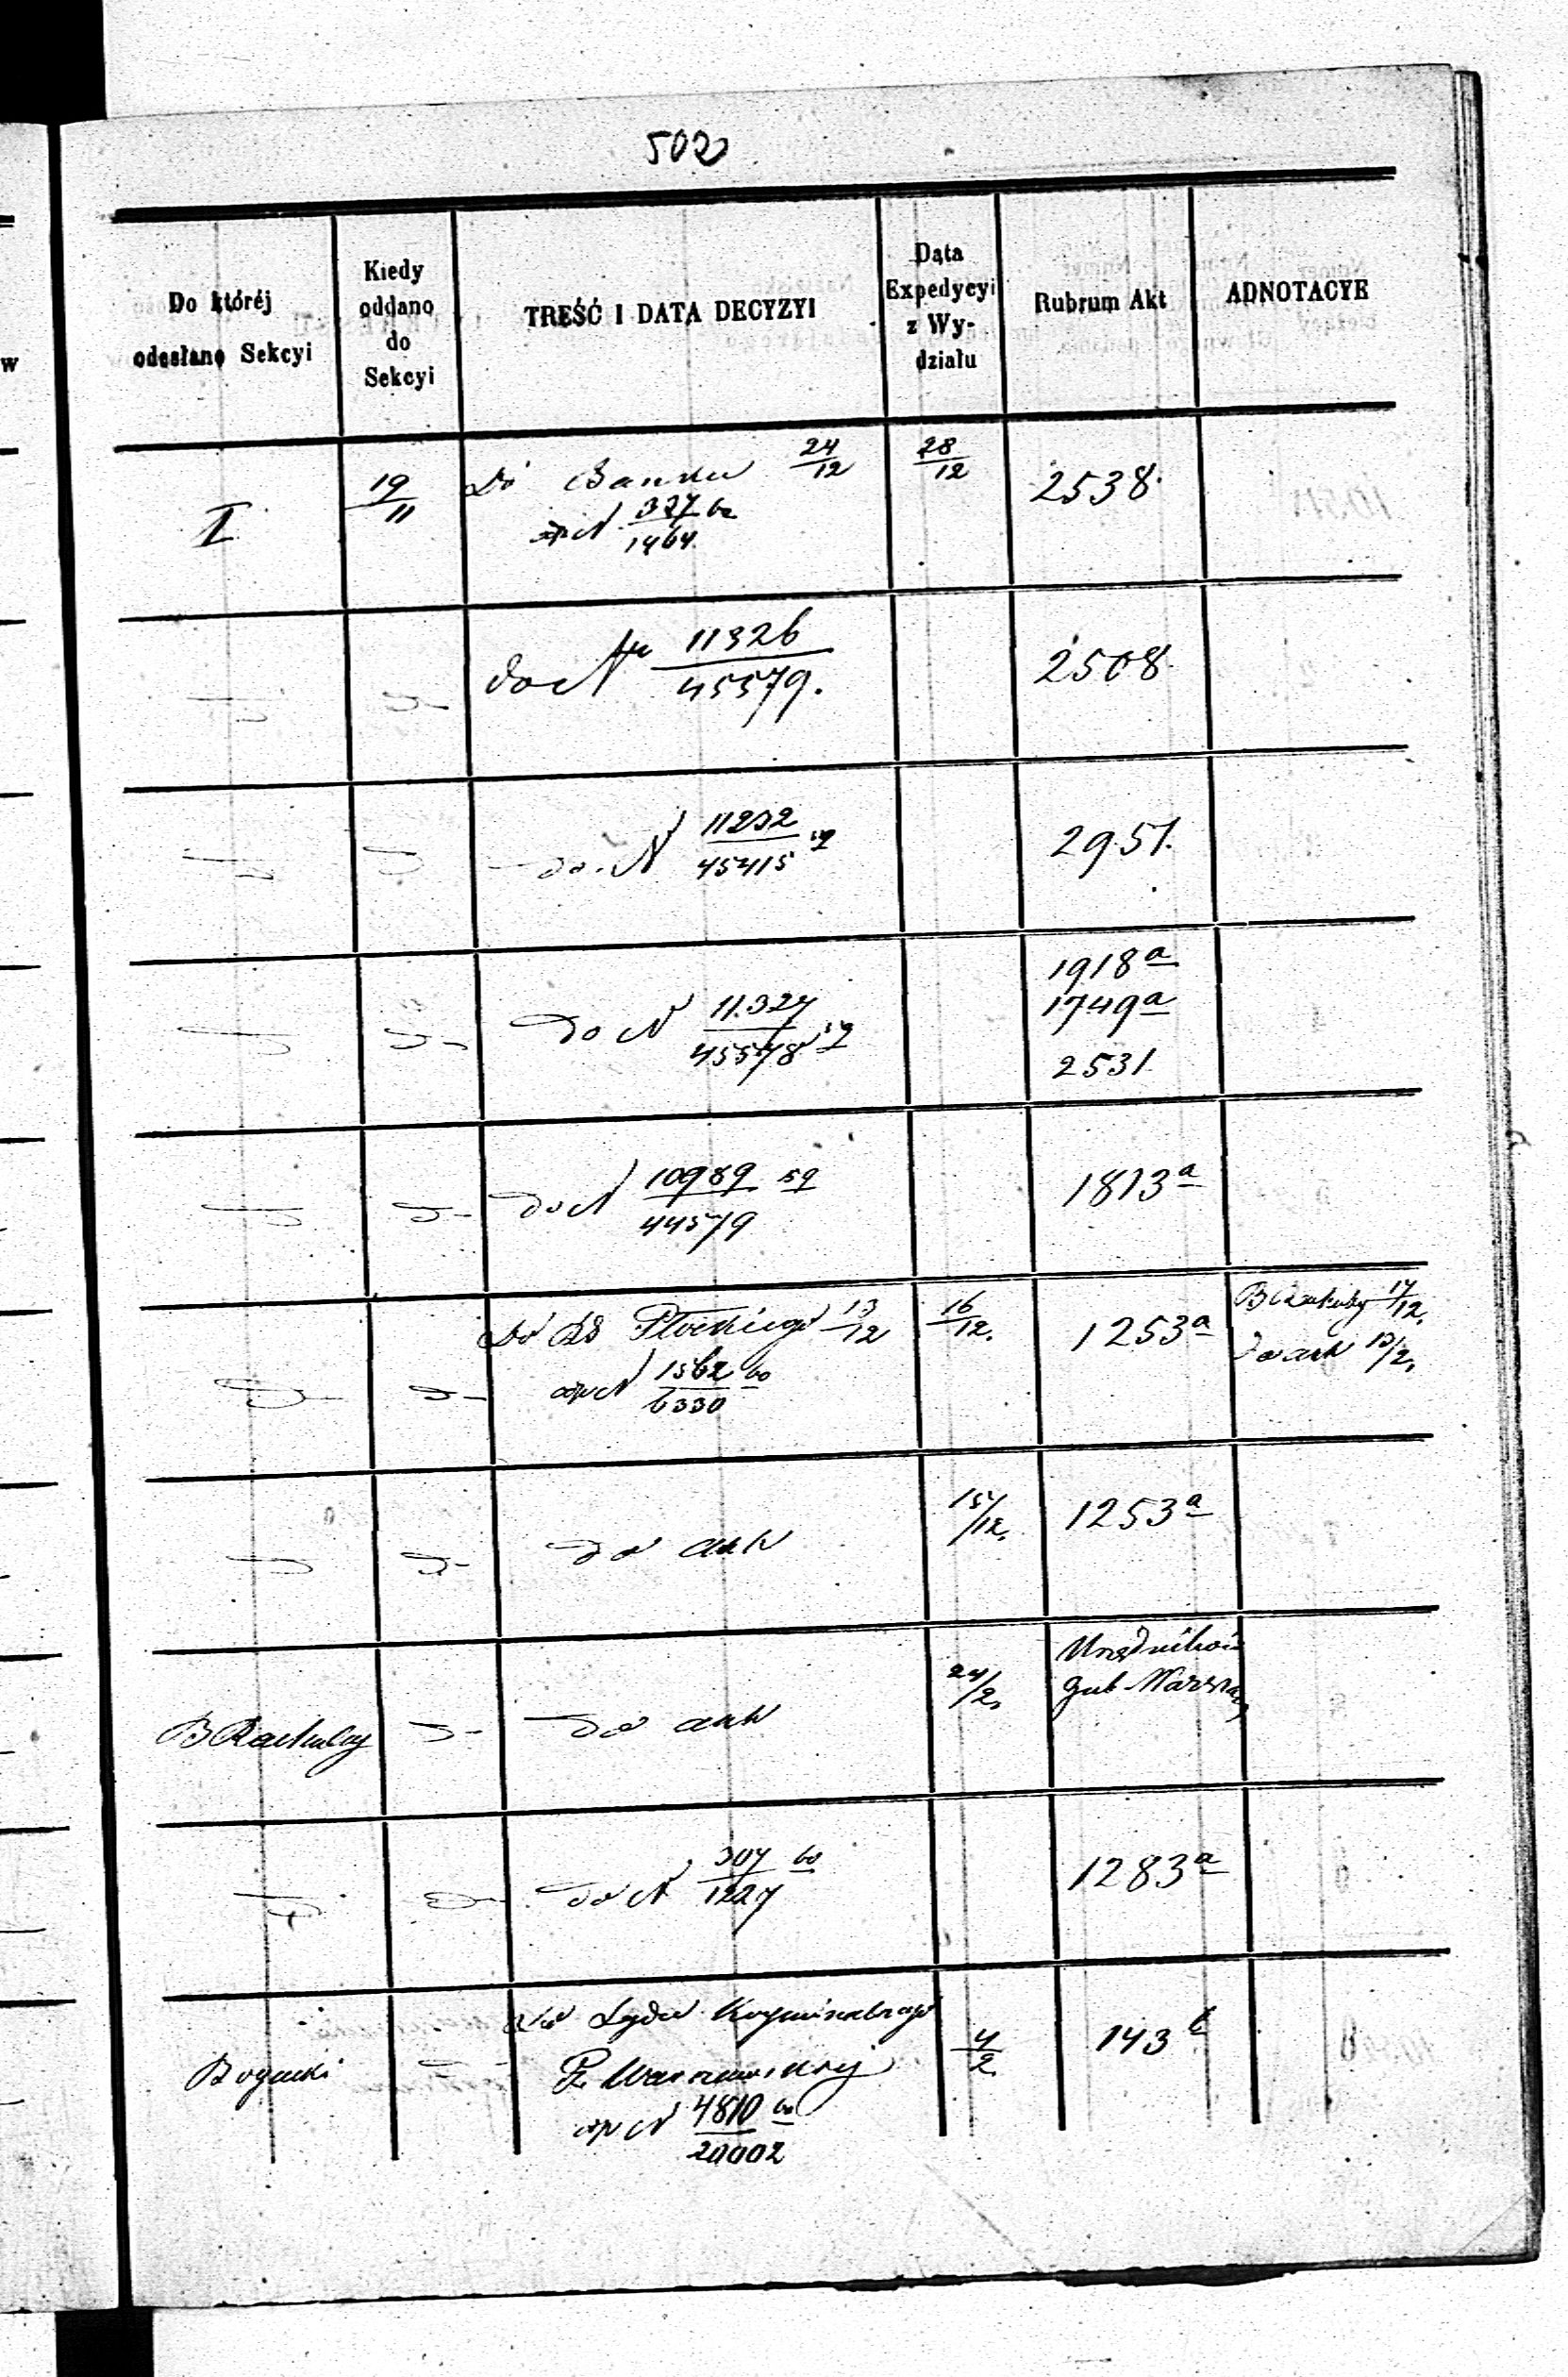 502
Do któréj
odesłano Sekcyi
Kiedy
oddano
do
Sekcyi
TREŚĆ I DATA DECYZYI
Data
Expedycyi
z Wy-
działu
Rubrum Akt
ADNOTACYE
I
19/11
Do Banku 24/12
N 327/1464
28/12
2538
do N 11326
45579.
2508
do N 11232
45415
2951.
do N 11.327
45578
1918 a
1749 a
2531
do N 10989 59
44579
1813 a
Do Płockiego 13/12
N 1562 60
6330
16/12.
1253 a
17/12.
do akt
do akt
15/12.
1253 a
B Rachuby
do akt
24/2.
Urzędników
Gub Warszaw
do N 307 60
1227
1283 a
Bogucki
Do Sądu Kryminalnego
N 4810 60
20002
4/2
143